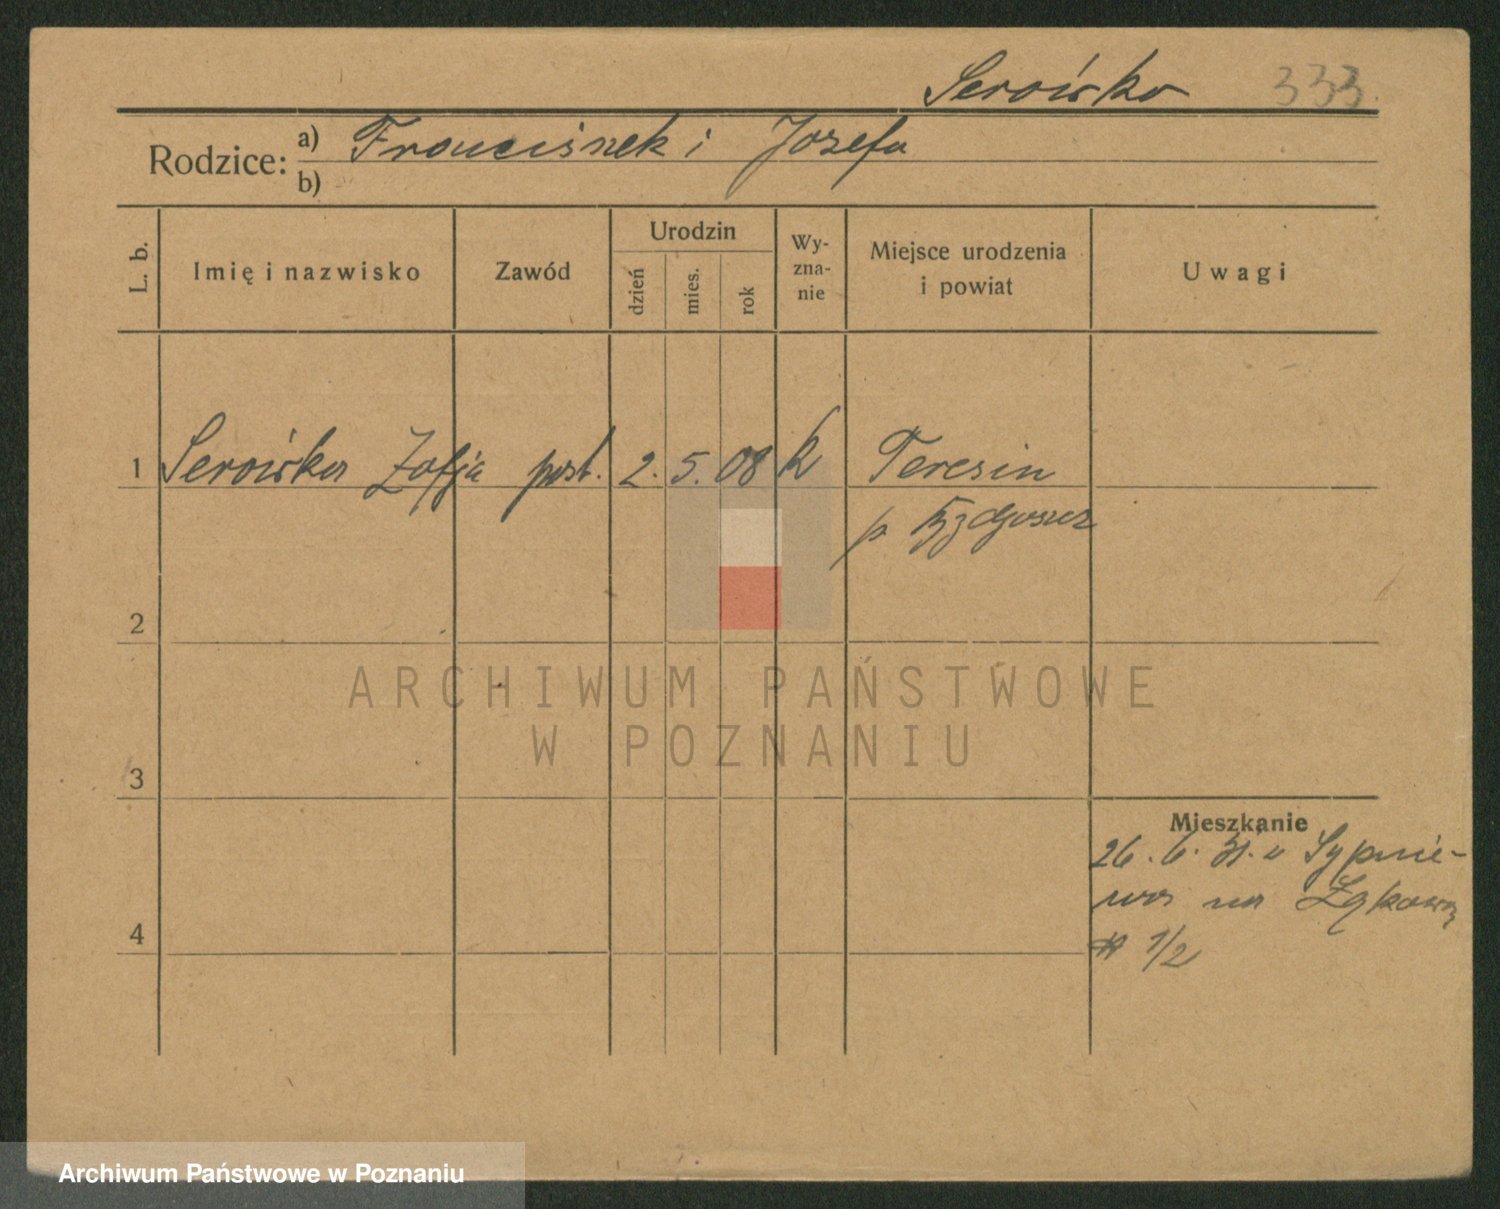 Serówka 333.
Rodzice: a) Franciszek i Józefa
b)
L. b. Imię i nazwisko Zawód Urodzin dzień mies. rok Wy-zna-nie Miejsce urodzenia i powiat Uwagi
1 Serówka Zofja 2. 5. 08 k Teresin
p. Bydgoszcz
2
ARCHIWUM PAŃSTWOWE
W POZNANIU
3
Mieszkanie
26. 6. 31. Sypnie-
wo na Łąkową
4 1/2
Archiwum Państwowe w Poznaniu